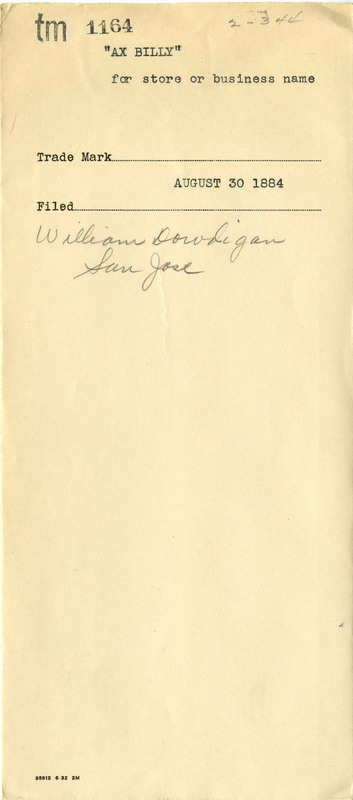 tm 1164 2-344
"AX BILLY"
for store or business name
Trade Mark
AUGUST 30 1884
Filed
William Dowdigan
San Jose
98812 6-32 2M